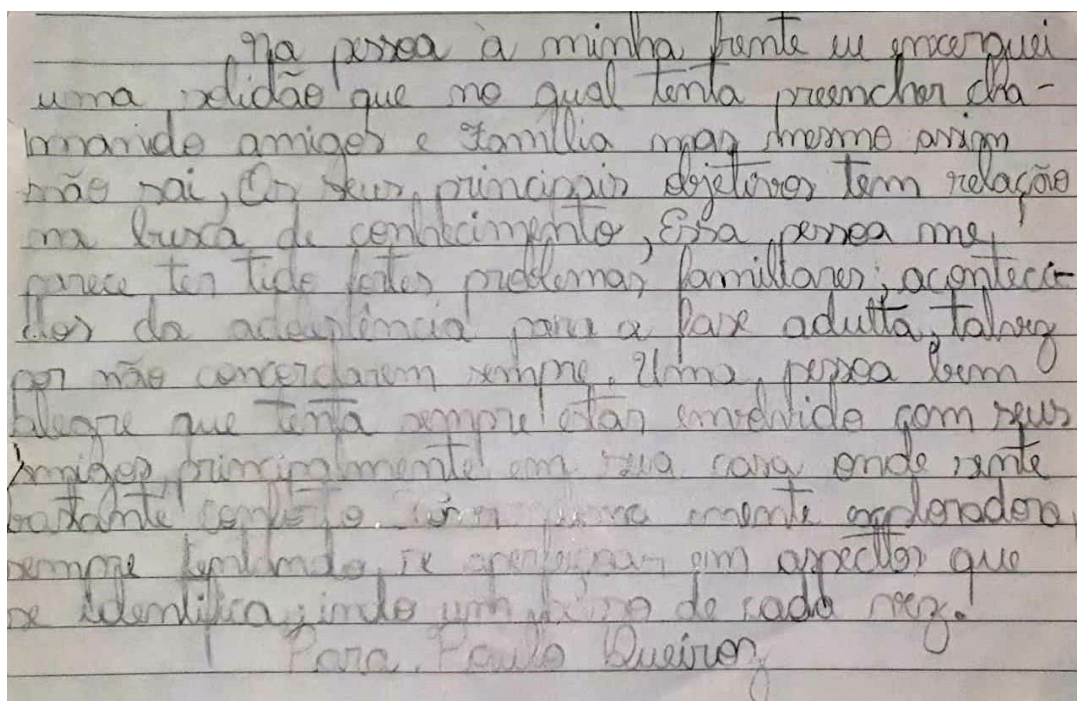 Na pessoa à minha frente eu enxerguei
uma solidão que no qual tenta preencher cha-
mando amigos e família mas mesmo assim
não sai, Os seus principais objetivos tem relação
na busca de conhecimento, Essa pessoa me
parece ter tido fortes problemas familiares, aconteci-
dos da adolescência para a fase adulta, talvez
por não concordarem sempre. Uma pessoa bem
alegre que tenta sempre estar envolvido com seus
amigos principalmente em sua casa onde sente
bastante conforto mente exploradora,
sempre tentando se aperfeiçoar em aspectos que
se identifica, indo um de cada vez.
Para. Paulo Queiroz